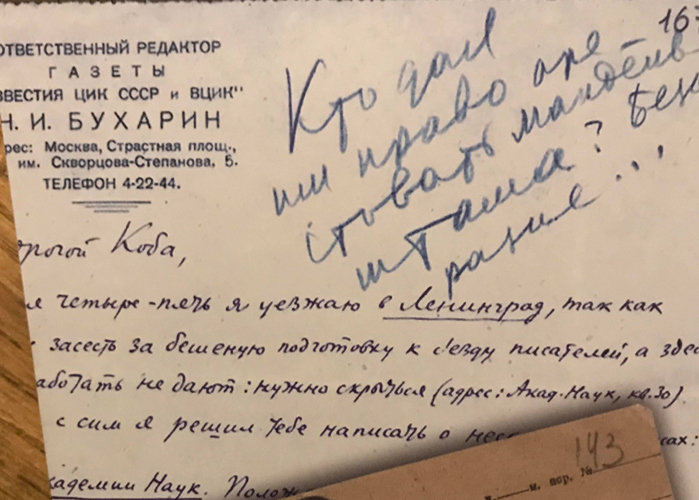 163
ОТВЕТСТВЕННЫЙ РЕДАКТОР
ГАЗЕТЫ
ЗВЕСТИЯ ЦИК СССР и ВЦИК"
Н. И. БУХАРИН
рес: Москва, Страстная площ.,
им. Скворцова-Степанова, 5.
ТЕЛЕФОН 4-22-44.
Кто дал
им право аре-
стовать мандель-
штама? Безо-
разие...
рогой Коба,
я четыре-пять я уезжаю в Ленинград, так как
засесть за бешеную подготовку к съезду писателей, а здес
аботать не дают: нужно скрыться (адрес: Акад. Наук, кв. 30).
с сим я решил тебе написать о нес сах:
кадемии Наук. Полож
м. пор. № 143